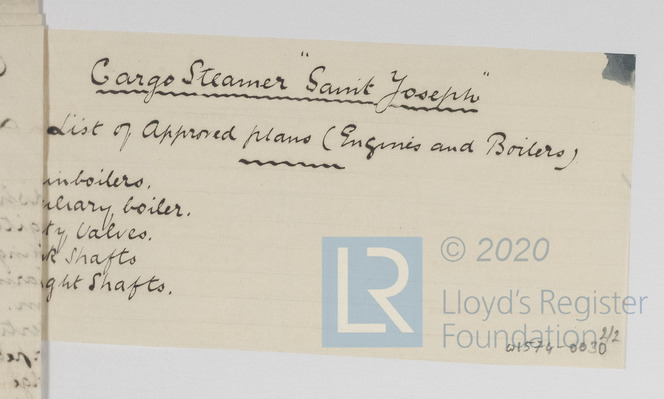 Cargo Steamer "Saint Joseph"
List of Approved plans (Engines and Boilers)
inboilers.
iliary boiler.
ty Valves.
k Shafts
ght Shafts.
LR
© 2020
Lloyd's Register
Foundation
W1574-0030 2/2